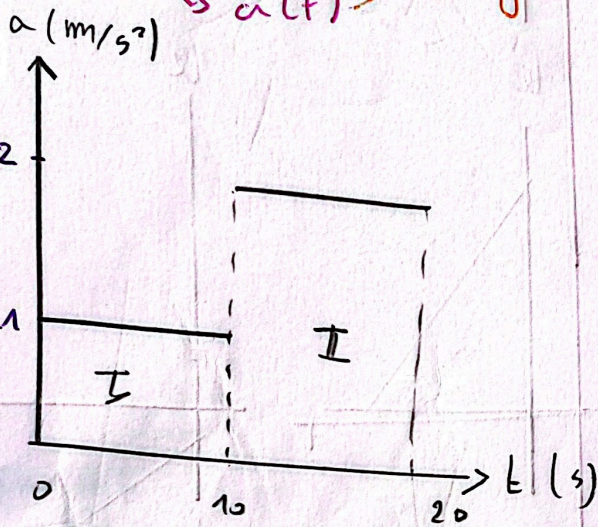 a(t)
a (m/s²)
2
II
1
I
0
10
20
t (s)